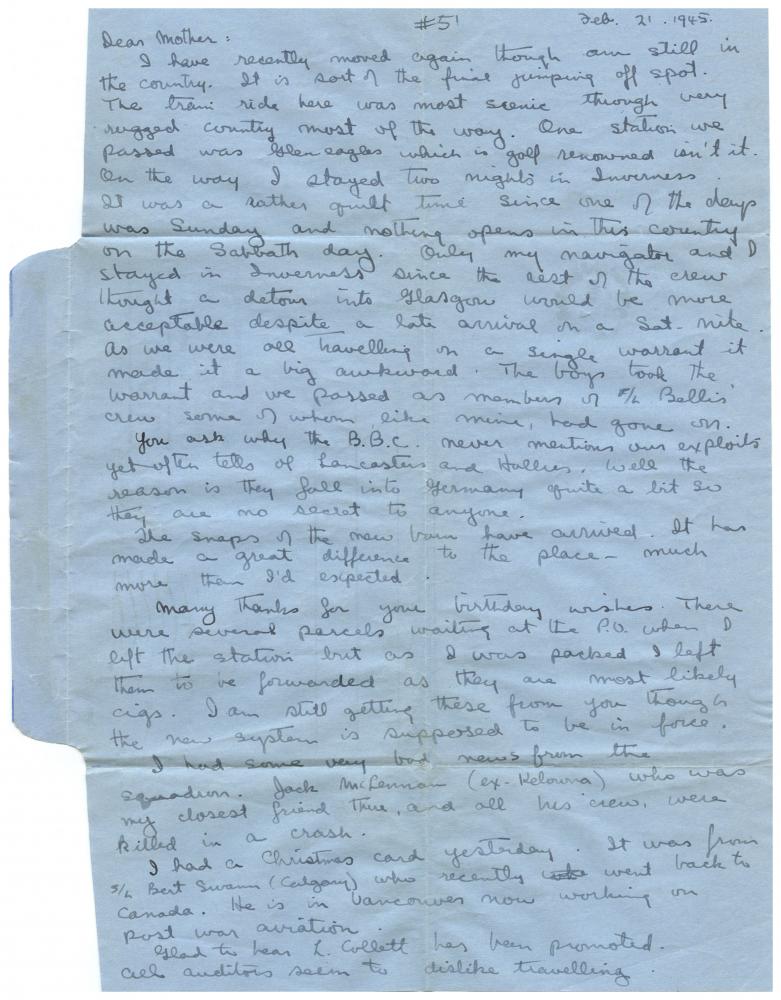 #51 Feb. 21. 1945.
Dear Mother:
I have recently moved again though am still in
the country. It is sort of the final jumping off spot.
The train ride here was most scenic through very
rugged country most of the way. One station we
passed was Gleneagles which is golf renowned isn't it.
On the way I stayed two nights in Inverness.
It was a rather quiet time since one of the days
was Sunday and nothing opens in this country
on the Sabbath day. Only my navigator and I
stayed in Inverness since the rest of the crew
thought a detour into Glasgow would be more
acceptable despite a late arrival on a Sat. nite.
As we were all travelling on a single warrant it
made it a big awkward. The boys took the
warrant and we passed as members of F/L Bellis'
crew some of whom, like mine, had gone on.
You ask why the B.B.C. never mentions our exploits
yet often tells of Lancasters and Hallies. Well the
reason is they fall into Germany quite a bit so
they are no secret to anyone.
The snaps of the new barn have arrived. It has
made a great difference to the place - much
more than I'd expected.
Many thanks for your birthday wishes. There
were several parcels waiting at the P.O. when I
left the station but as I was packed I left
them to be forwarded as they are most likely
cigs. I am still getting these from you though
the new system is supposed to be in force.
I had some very bad news from the
squadron. Jack McLennan (ex-Kelowna) who was
my closest friend there, and all his crew, were
killed in a crash.
I had a Christmas card yesterday. It was from
S/L Bert Swann (Calgary) who recently went back to
Canada. He is in Vancouver now working on
post war aviation.
Glad to hear L. Collett has been promoted.
All auditors seem to dislike travelling.